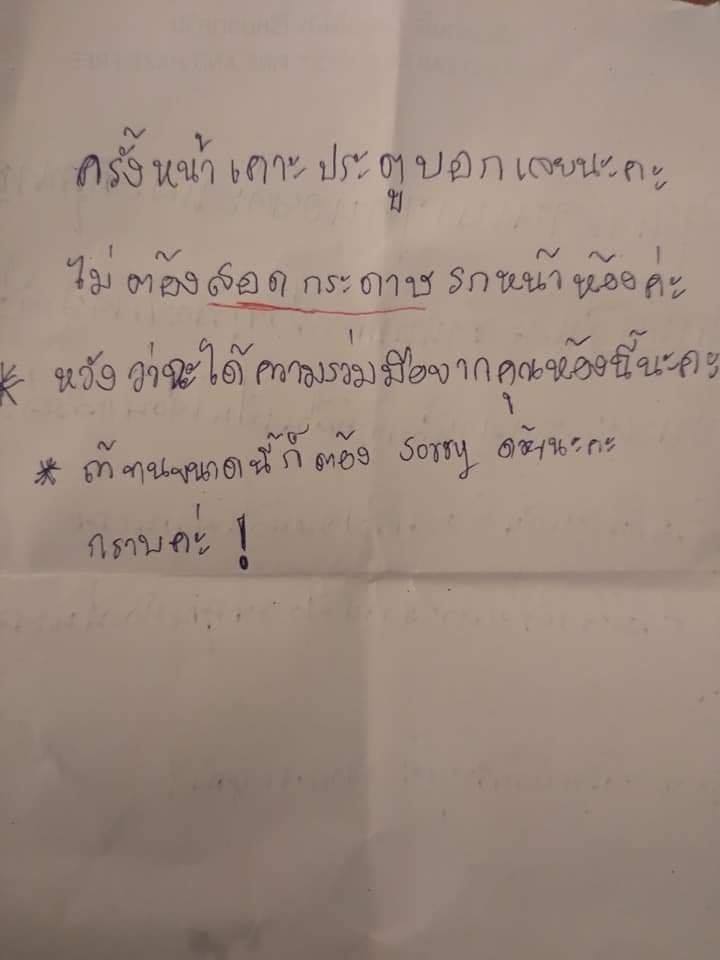 ครั้งหน้า เคาะ ประตู บอก เลยนะคะ
ไม่ ต้อง สอด กระดาษ รกหน้าห้องค่ะ
* หวังว่าจะได้ความร่วมมือจากคุณห้องนี้นะคะ
* ถ้าทนขนาดนี้ก็ต้อง sorry ด้วยนะคะ
กราบค่ะ !